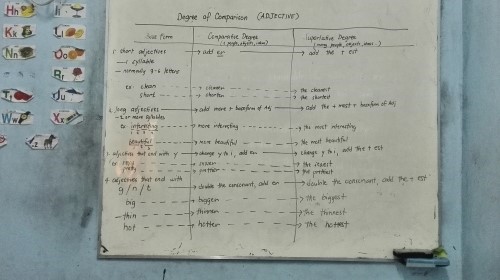 Degree of Comparison (ADJECTIVE)
Base Form Comparative Degree Superlative Degree
(2 people, objects, ideas) (many people, objects, ideas)
1. short adjectives add er add the + est
1 syllable
normally 3-6 letters
ex: clean cleaner the cleanest
short shorter the shortest
2. long adjectives add more + baseform of Adj add the + most + baseform of Adj
2 or more syllables
ex: interesting more interesting the most interesting
beautiful more beautiful the most beautiful
3. adjectives that end with y change y to i, add er change y to i, add the + est
pretty prettier the prettiest
4. adjectives that end with
g / n / t double the consonant, add er double the consonant, add the + est
big bigger the biggest
thin thinner the thinnest
hot hotter the hottest
Hh
Ii
Kk
Ll
Nn
Oo
Rr
Tt
Uu
Ww
Xx